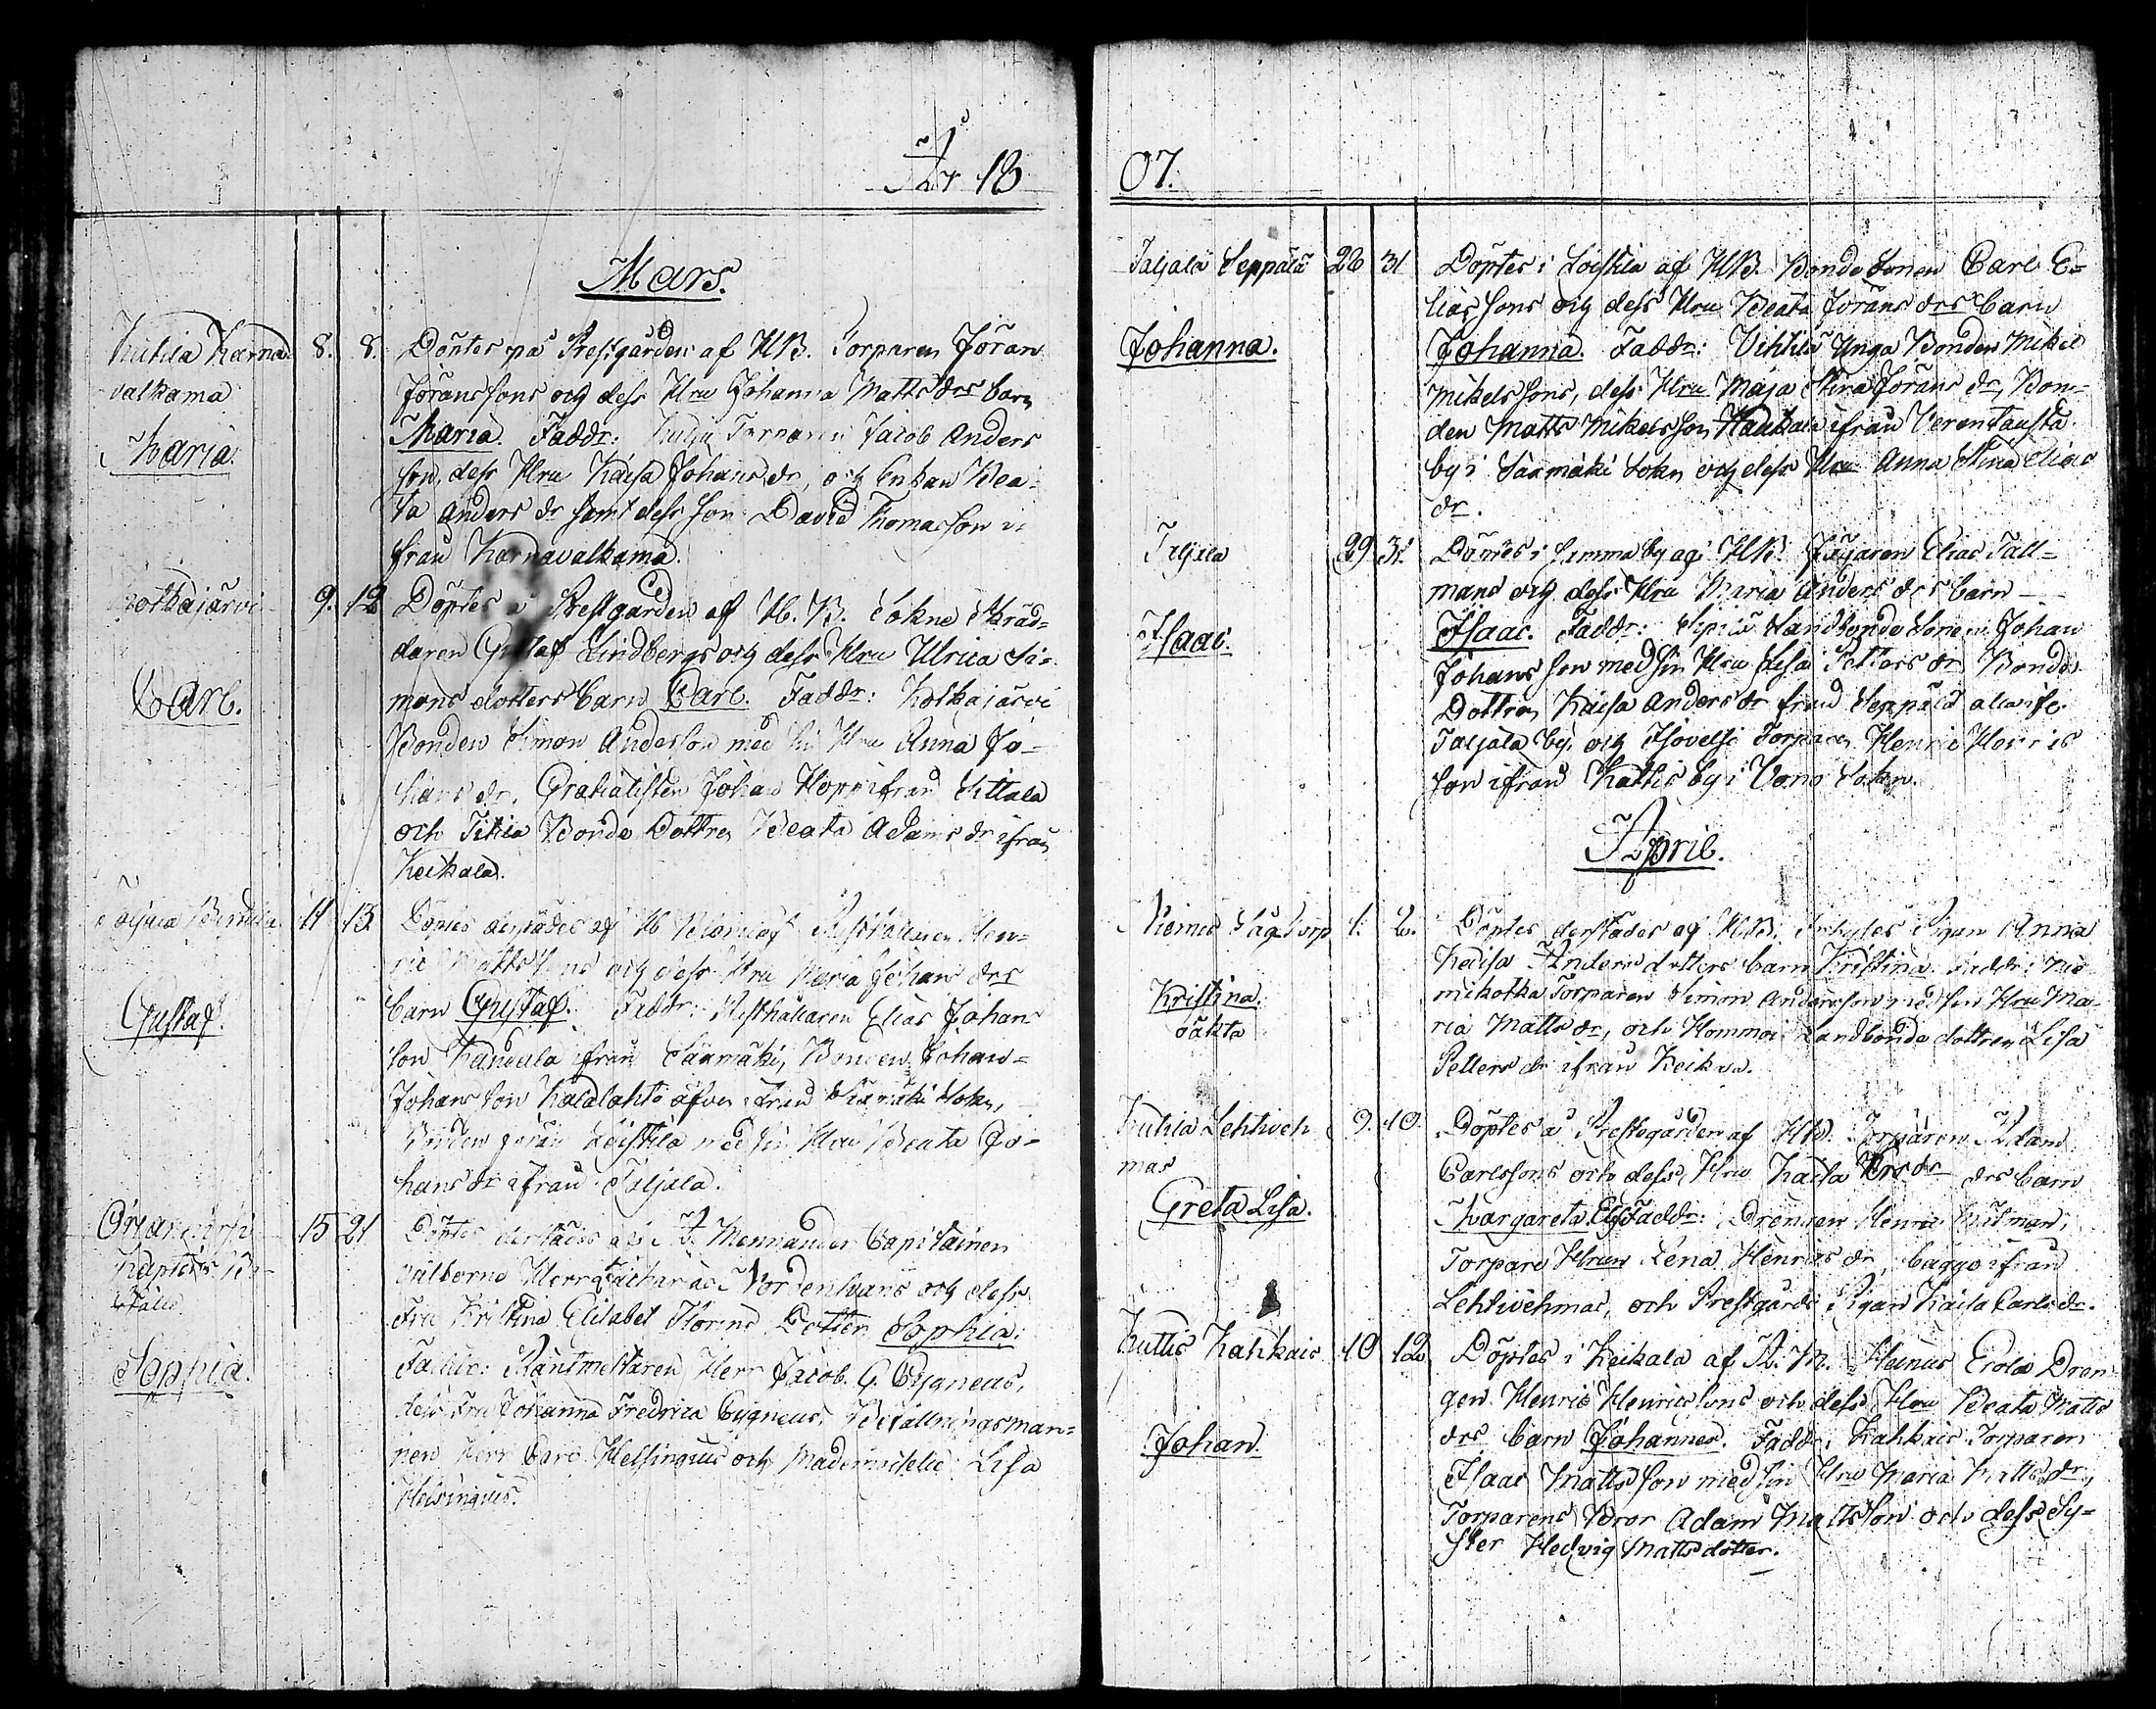 År 18
Mars.
Kutila Karna
valkama
Maria.
8. 8.
Döptes på Prestgården af HB. Torparen Jöran
Jöranssons och dess Hru Johanna Matts drs barn
Maria. Faddr: Torparen Jacob Anders
son, dess Hru Kaisa Johans dr, och Enkan Bea-
ta Anders dr samt dess son David Thomasson i-
från Karnavalkama.
Kotkajärvi
Carl.
9. 12
Döptes å Prestgården af H. B. Sokne Skräd-
daren Gustaf Lindbergs och dess Hru Ulrica Si-
mons dotters barn Carl. Faddr: Kotkajärvi
Bonden Simon Andersson med sin Hru Anna Jo-
hans dr, Gratialisten Johan Hopp ifrån Sittala
och Titila Bonde Dottren Beata Adams dr ifrån
Keikala.
Gustaf.
11 13.
Döptes derstädes af H Rusthållaren Hen-
ric Mattssons och dess Hru Maria Johans drs
barn Gustaf. Faddr: Rusthållaren Elias Johans
son ifrån Säxmäki, Bonden Johan
Johansson Kaldlahti äfven ifrån Säxmäki Sokn,
Bonden Jöran Loistila med sin Hru Beata Jo-
hans dr ifrån Taljala.
Sophia.
15 21
Döptes derstädes af A. Mennander Capitainen
välborne Herr Zacharias Nordensvans och dess
Fru Kristina Elisabet Horns Dotter Sophia:
Faddr: Räntmestaren Herr Jacob. G. Cygneus,
dess Fru Johanna Fredrica Cygneus, Befallningsman-
nen Herr Carl Helsingius och Mademoiselle Lisa
Helsingius.
07.
Taljala Seppälä
Johanna.
26 31
Döptes i Loistila af HB. Bonde Sonen Carl E-
liassons och dess Hru Beata Jörans drs barn
Johanna. Faddr: Vihtilä Unga Bonden Mikel
Mikelssons, dess Hru Maja Stina Jörans dr, Bon-
den Matts Mikelsson ifrån Verentausta
by i Säxmäki Sokn och dess Hru Anna Stina Elias
dr.
Taljala
Isaac.
29 31.
Döptes i by af HB. Jägaren Elias Tall-
mans och dess Hru Maria Anders drs barn
Isaac. Faddr: Sipilä Landbonde Sonen Johan
Johansson med sin Hru Lisa Petters dr Bonde
Dottren Kaisa Anders dr från Seppälä
Taljala by, och Torparen Henric Henrics
son ifrån Kattis by i Vono Sokn.
April.
Kristina.
oäkta
1. 2.
Döptes derstädes af HB. Pigan Anna
Kaisa Anders dotters barn Kristina. Faddr: Nie
mikotka Torparen Simon Andersson med sin Hru Ma-
ria Matts dr, och Hommoi Landbonde dottren Lisa
Petters dr ifrån
Kutila Lehtiveh
mas
Greta Lisa.
9. 10.
Döptes å Prestgården af HB. Torparen Adam
Carlssons och dess Hru Kaisa drs barn
Margareta Faddr: Drengen Henric
Torpare Hrun Lena Henrics dr, ifrån
Lehtivehmas, och Prestgårds Pigan Kaisa Carls dr.
Kuttis Kahkais
Johan.
10 12
Döptes i Keikala af A. M. Erola Dren
gen Henric Henricssons och dess Hru Beata Matts
drs barn Johannes. Faddr: Kahkais Torparen
Isaac Mattsson med sin Hru Maria Matts dr,
Torparens Bror Adam Mattsson och dess Sy-
ster Hedvig Matts dotter.